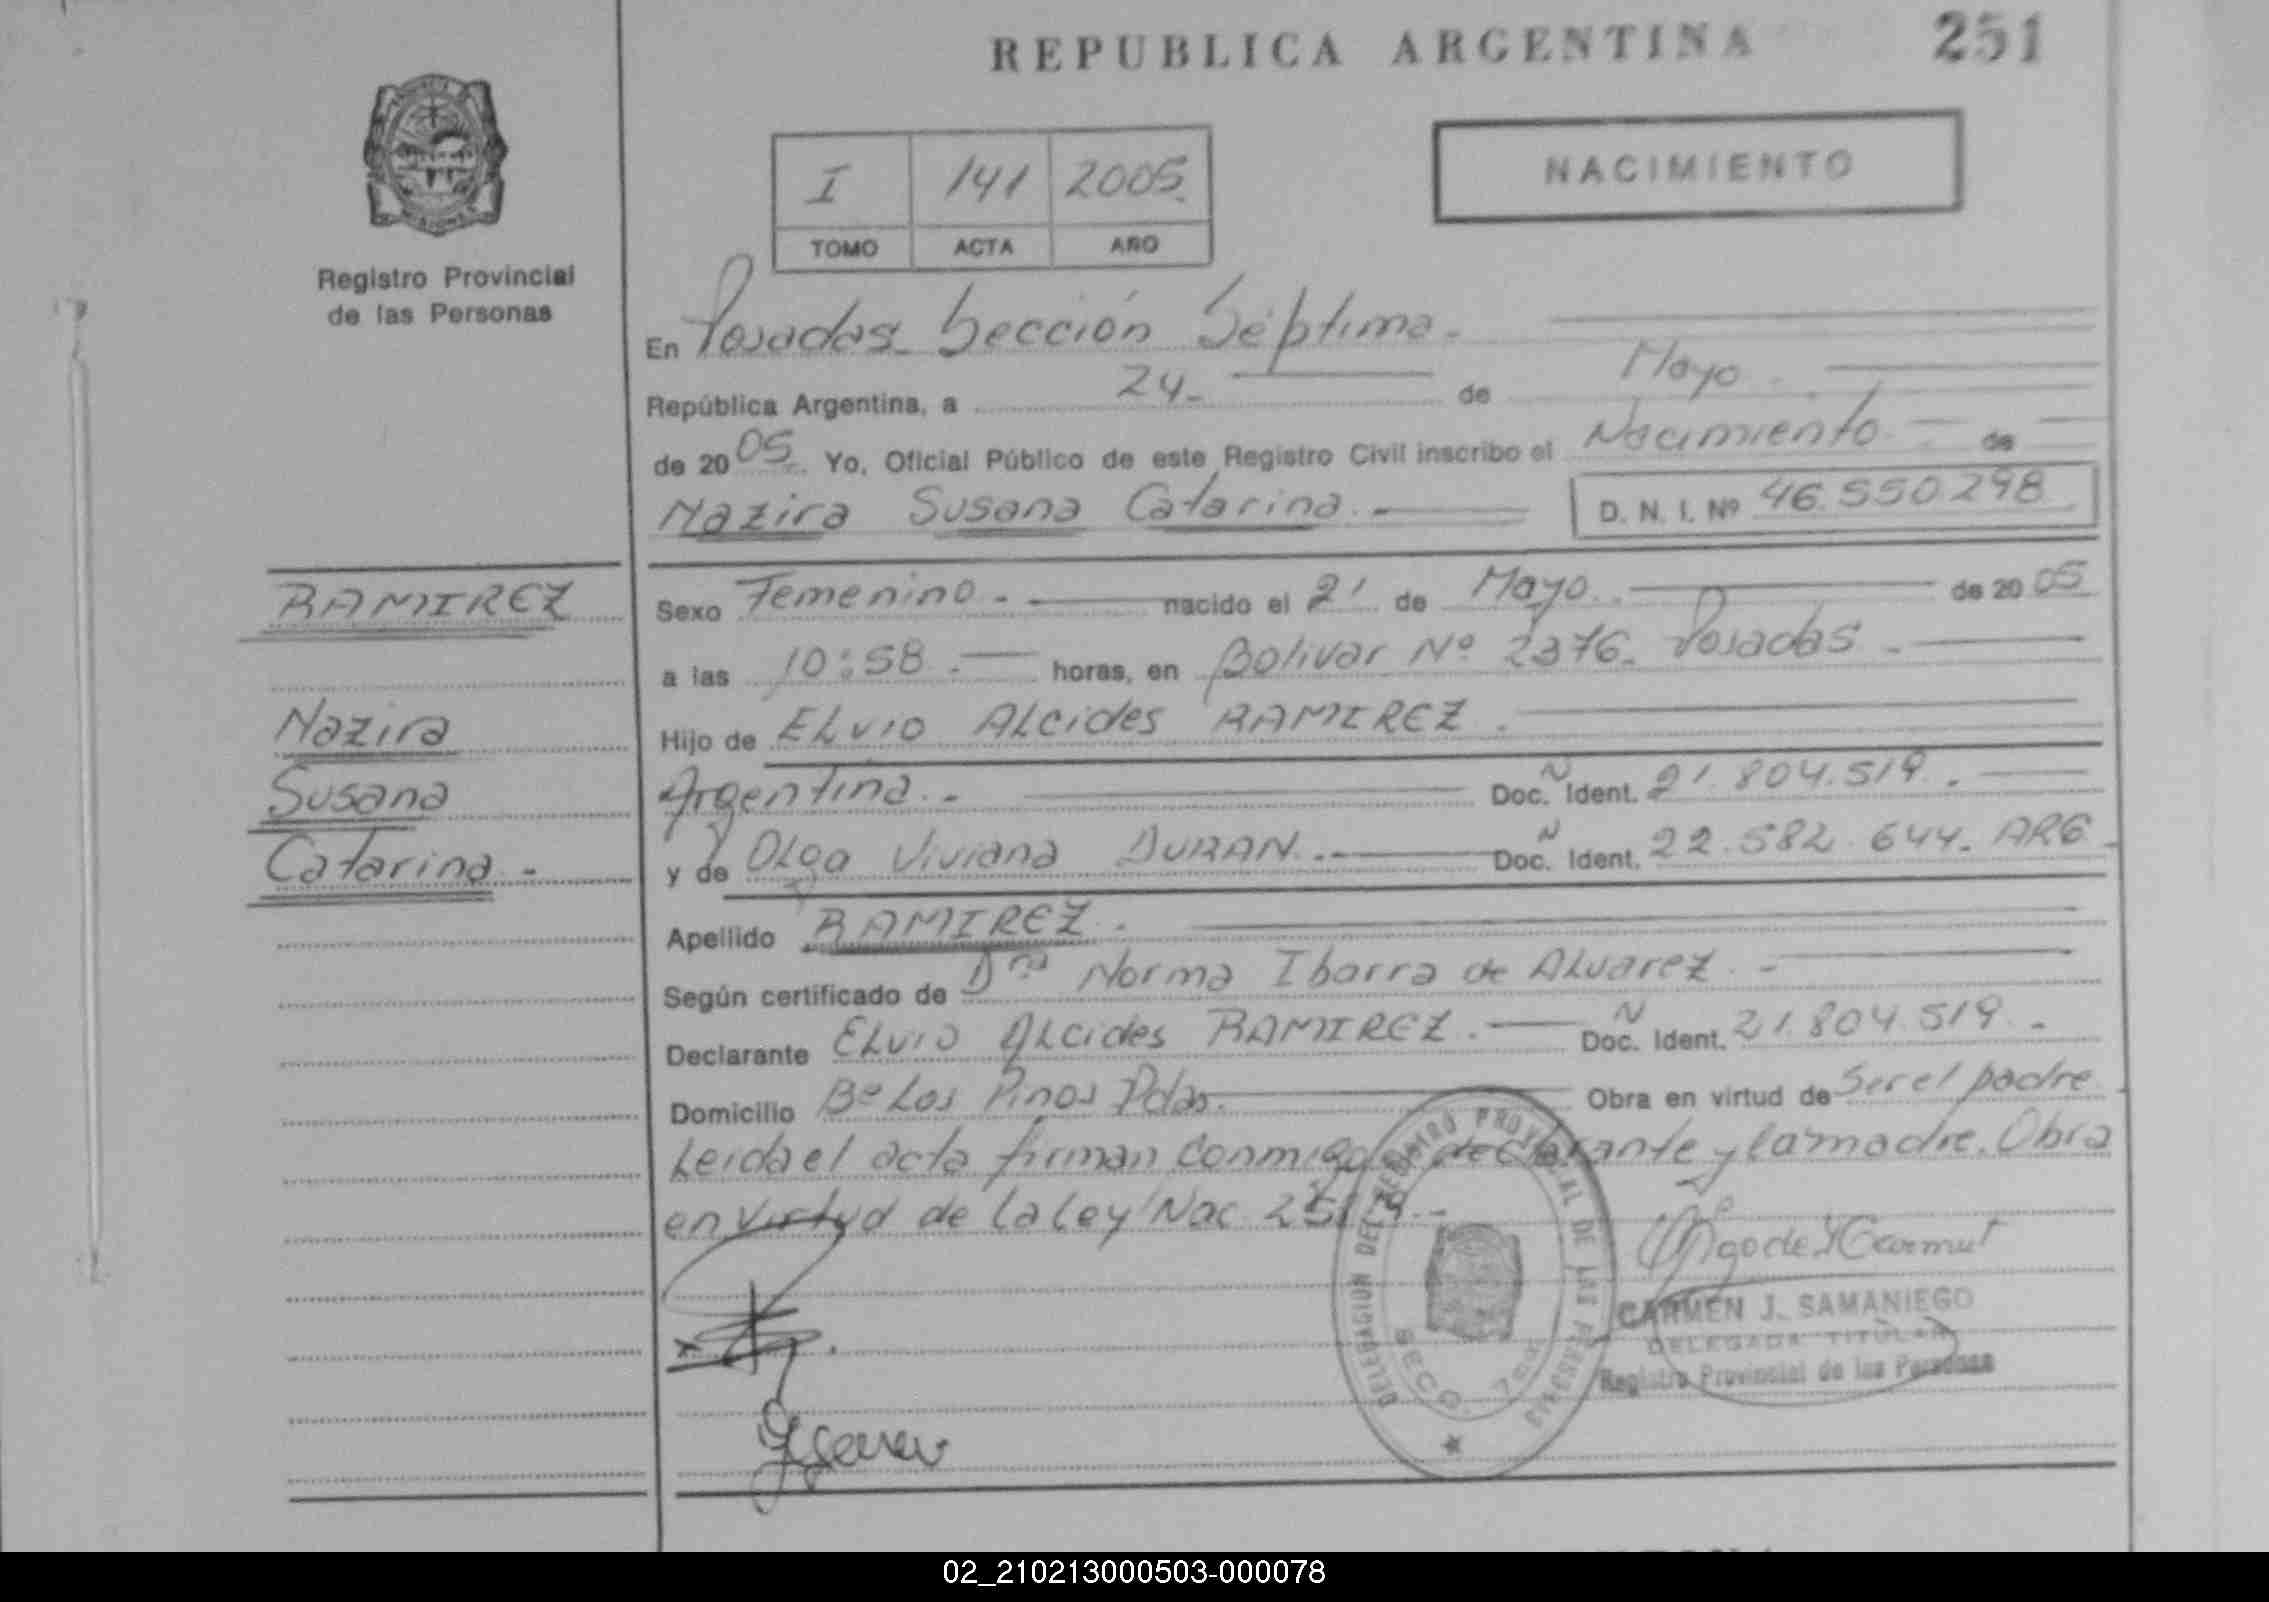 REPUBLICA ARGENTINA
251
Registro Provincial
de las Personas
I 141 2005
TOMO ACTA AÑO
NACIMIENTO
En Posadas Sección Séptima.
República Argentina, a 24 de Mayo
de 2005 Yo, Oficial Público de este Registro Civil inscribo el Nacimiento de
Nazira Susana Catarina.
D. N. I. Nº 46.550.298
RAMIREZ
Nazira
Susana
Catarina.
Sexo Femenino. nacido el 21 de Mayo de 2005
a las 10:58 horas, en Bolivar Nº 2376. Posadas
Hijo de ELVIO ALcides RAMIREZ.
Argentina. Doc. N Ident. 21.804.519.
y de OLga Viviana DURAN. Doc. N Ident. 22.582.644. ARG
Apellido RAMIREZ.
Según certificado de Dra Norma Ibarra de ALvarez.
Declarante ELVIO ALcides RAMIREZ. Doc. N Ident. 21.804.519.
Domicilio Bº Los Pinos Pdas. Obra en virtud de Ser el padre
Leida el acta firman conmigo declarante y la madre. Obra
en virtud de la Ley Nac
DELEGACION DEL REGISTRO PROVINCIAL DE LAS PERSONAS
SECC. 7
CARMEN J. SAMANIEGO
DELEGADA TITULAR
Registro Provincial de las Personas
02_210213000503-000078